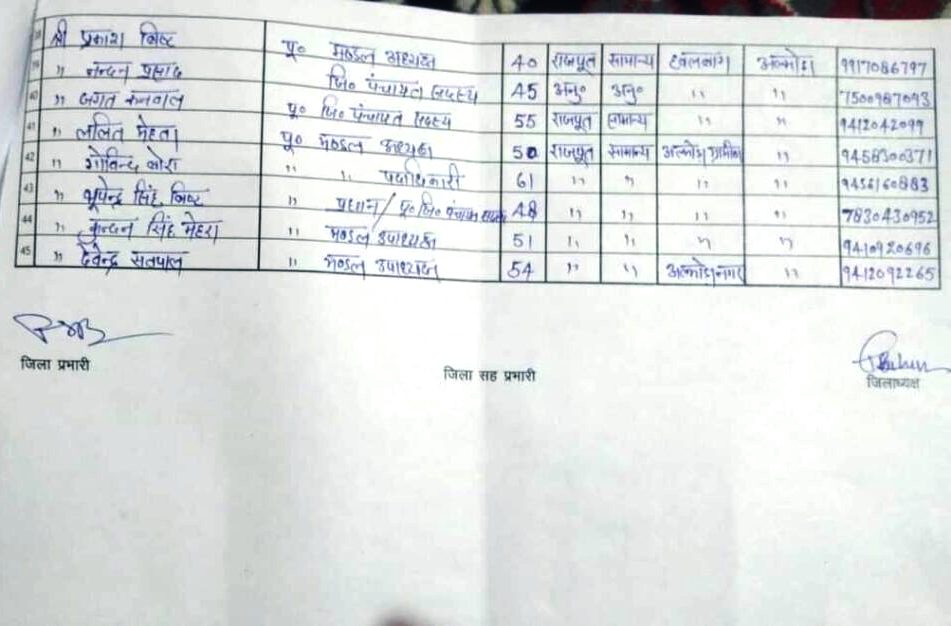 38 श्री प्रकाश बिष्ट पू० मण्डल अध्यक्ष 40 राजपूत सामान्य हवलबाग अल्मोड़ा 9917086797
39 " नन्दन प्रसाद जि० पंचायत सदस्य 45 अनु० अनु० " " 7500987093
40 " जगत कनवाल पू० जि० पंचायत सदस्य 55 राजपूत सामान्य " " 9412042099
41 " ललित मेहता पू० मण्डल अध्यक्ष 50 राजपूत सामान्य अल्मोड़ा ग्रामीण " 9458300371
42 " गोविन्द " " पदाधिकारी 61 " " " " 9456160883
43 " भूपेन्द्र सिंह बिष्ट " प्रधान/पू० जि० पंचायत सदस्य 48 " " " " 7830430952
44 " कुन्दन सिंह मेहरा " मण्डल उपाध्यक्ष 51 " " " " 9410920696
45 " देवेन्द्र सतपाल " मण्डल उपाध्यक्ष 54 " " अल्मोड़ा नगर " 9412092265
जिला प्रभारी
जिला सह प्रभारी
जिलाध्यक्ष